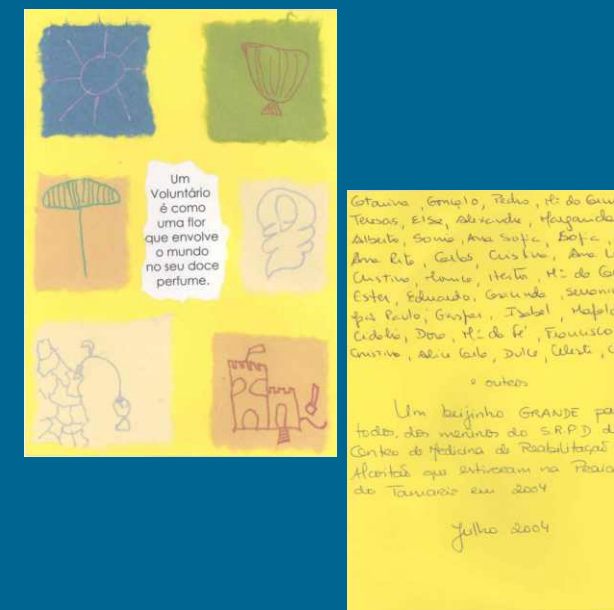 Um
Voluntário
é como
uma flor
que envolve
o mundo
no seu doce
perfume.
Catarina, Gonçalo, Pedro, Mª do
Teresas, Elsa, Alexandre, Margarida
Alberto, Sonia, Ana Sofia, Sofia
Ana Rita, Carlos, Cristina, Ana
Cristina, Monica, Mª do
Ester, Eduardo,
Paulo, Gaspar, Isabel, Mafalda
Dora, Mª da Fé, Francisco
Cristina, Alice Carlo, Dulce, Celeste,
e outros
Um beijinho GRANDE pa
todos, dos meninos do S.R.P.D d
Centro de Medicina de Reabilitaçã
Alcoitão que estiveram na Praia
do Tamariz em 2004
Julho 2004